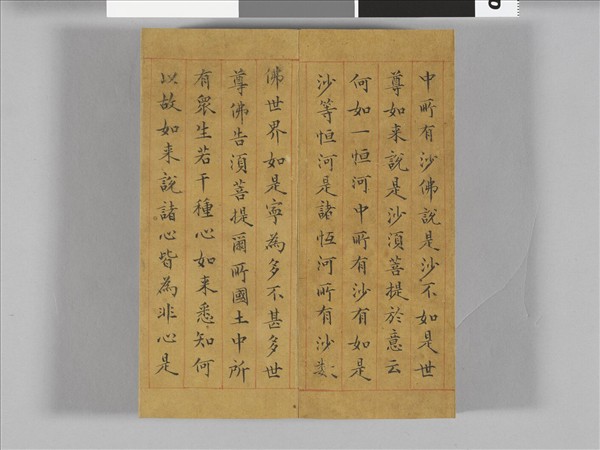 中所有沙佛說是沙不如是世
尊如来說是沙須菩提於意云
何如一恒河中所有沙有如是
沙等恒河是諸恒河所有沙數
佛世界如是寧為多不甚多世
尊佛告須菩提爾所國土中所
有眾生若干種心如来悉知何
以故如来說諸心皆為非心是